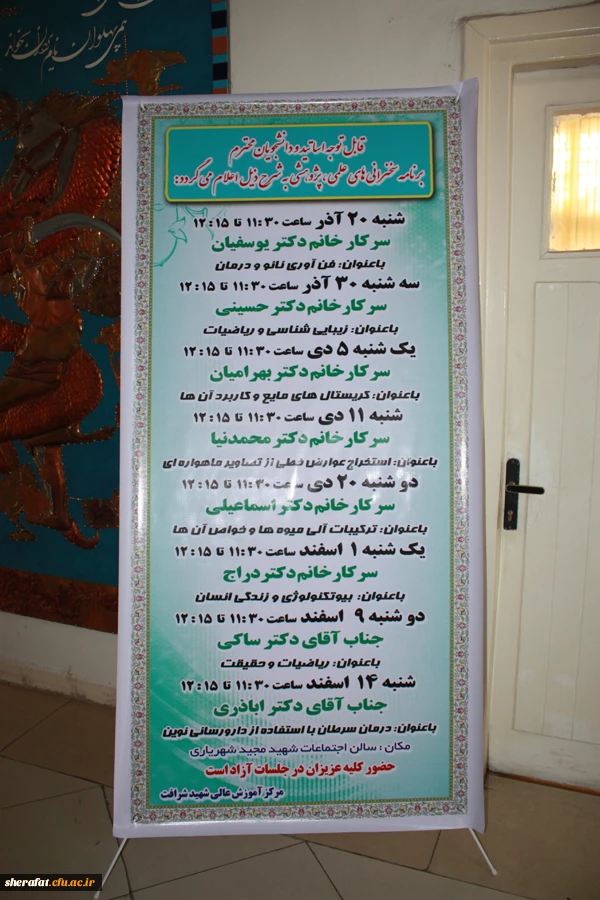 همی پهلوان نام
بخواند
قابل توجه اساتید و دانشجویان محترم
برنامه سخنرانی های علمی ، پژوهشی به شرح ذیل اعلام می گردد:
شنبه ۲۰ آذر ساعت ۱۱:۳۰ تا ۱۲:۱۵
سرکار خانم دکتر یوسفیان
باعنوان: فن آوری نانو و درمان
سه شنبه ۳۰ آذر ساعت ۱۱:۳۰ تا ۱۲:۱۵
سرکار خانم دکتر حسینی
باعنوان: زیبایی شناسی و ریاضیات
یک شنبه ۵ دی ساعت ۱۱:۳۰ تا ۱۲:۱۵
سرکار خانم دکتر بهرامیان
باعنوان: کریستال های مایع و کاربرد آن ها
شنبه ۱۱ دی ساعت ۱۱:۳۰ تا ۱۲:۱۵
سرکار خانم دکتر محمدنیا
باعنوان: استخراج عوارض خطی از تصاویر ماهواره ای
دو شنبه ۲۰ دی ساعت ۱۱:۳۰ تا ۱۲:۱۵
سرکار خانم دکتر اسماعیلی
باعنوان: ترکیبات آلی میوه ها و خواص آن ها
یک شنبه ۱ اسفند ساعت ۱۱:۳۰ تا ۱۲:۱۵
سرکار خانم دکتر دراج
باعنوان: بیوتکنولوژی و زندگی انسان
دو شنبه ۹ اسفند ساعت ۱۱:۳۰ تا ۱۲:۱۵
جناب آقای دکتر ساکی
باعنوان: ریاضیات و حقیقت
شنبه ۱۴ اسفند ساعت ۱۱:۳۰ تا ۱۲:۱۵
جناب آقای دکتر اباذری
باعنوان: درمان سرطان با استفاده از دارورسانی نوین
مکان : سالن اجتماعات شهید مجید شهریاری
حضور کلیه عزیزان در جلسات آزاد است
مرکز آموزش عالی شهید شرافت
sherafat.cfu.ac.ir